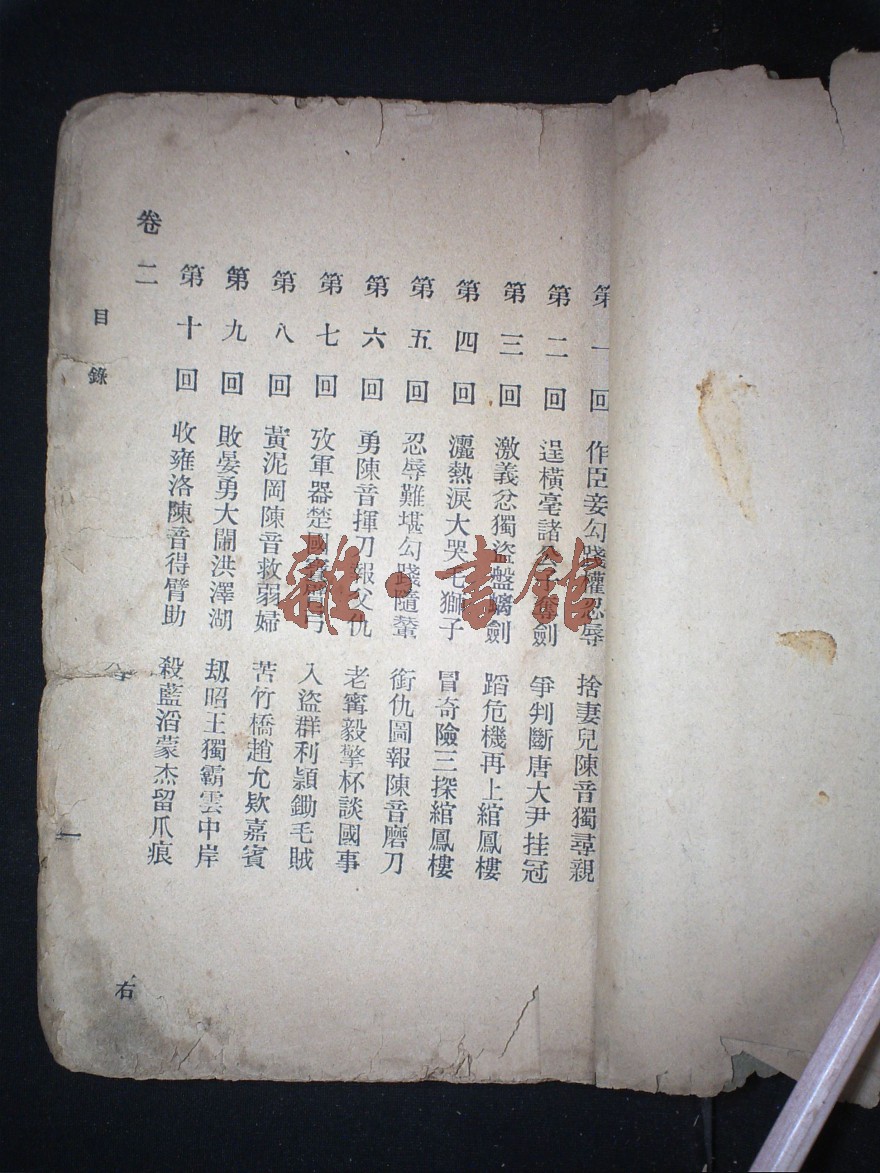 第一回 作臣妾勾踐權忍辱 捨妻兒陳音獨尋親
第二回 逞橫毫諸公子奪劍 爭判斷唐大尹挂冠
第三回 激義忿獨盜盤螭劍 蹈危機再上綰鳳樓
第四回 灑熱淚大哭毛獅子 冒奇險三探綰鳳樓
第五回 忍辱難堪勾踐隨輦 銜仇圖報陳音磨刀
第六回 勇陳音揮刀報父仇 老甯毅擎杯談國事
第七回 攷軍器楚國 弓 入盜群利頴鋤毛賊
第八回 黃泥岡陳音救弱婦 苦竹橋趙允欵嘉賓
第九回 敗晏勇大鬧洪澤湖 刼昭王獨霸雲中岸
第十回 收雍洛陳音得臂助 殺藍滔蒙杰留爪痕
卷二
目錄
一
右
雜·書館